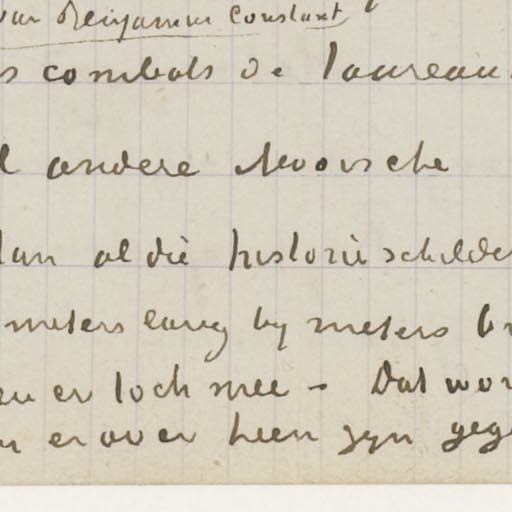 van Benjamin Constant
combats de taureau
andere Moorsche
dan al die historieschilder
meters lang by meters br
en er toch mee - Dat wor
er over heen zyn gege